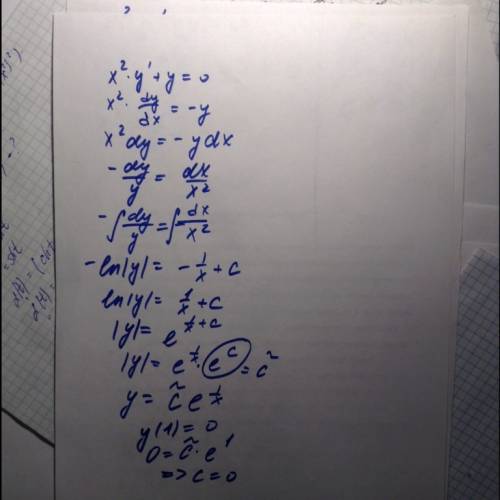 x²·y' + y = 0
x²· dy/dx = -y
x² dy = - y dx
- dy/y = dx/x²
- ∫ dy/y = ∫ dx/x²
- ln|y| = - 1/x + c
ln|y| = 1/x + c
|y| = e^(1/x + c)
|y| = e^(1/x) · e^c = c̃
y = c̃ e^(1/x)
y(1) = 0
0 = c̃ · e¹
=> c = 0